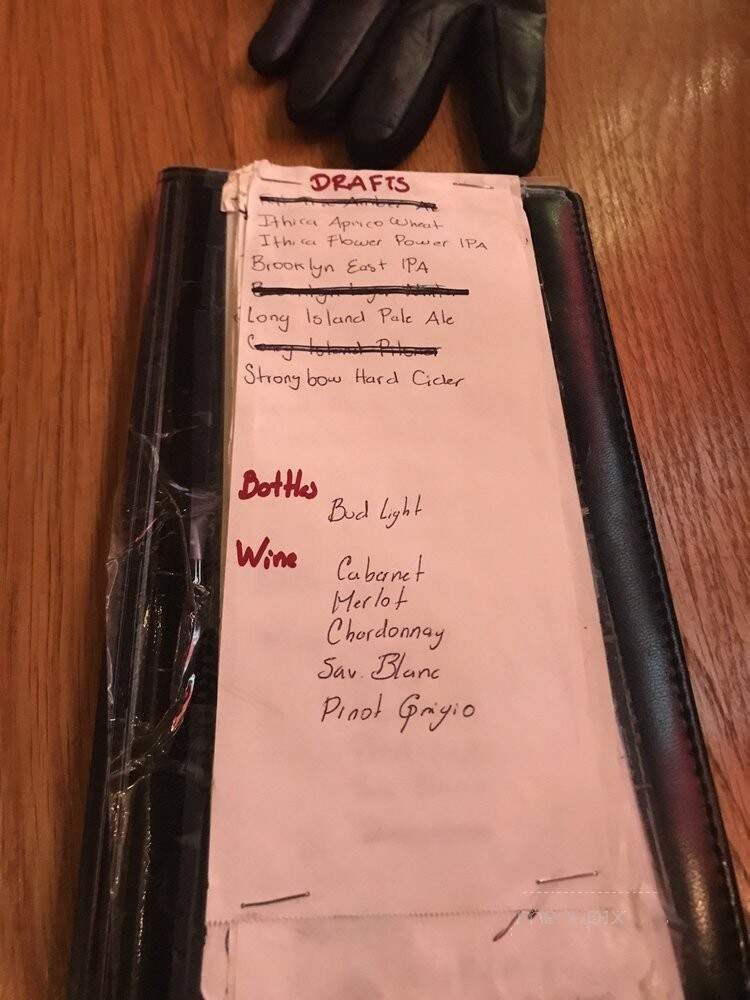 DRAFTS
Ithica Aprico Wheat
Ithica Flower Power IPA
Brooklyn East IPA
Long Island Pale Ale
Long Island Pilsner
Strongbow Hard Cider
Bottles
Bud Light
Wine
Cabernet
Merlot
Chardonnay
Sav. Blanc
Pinot Grigio
menupix